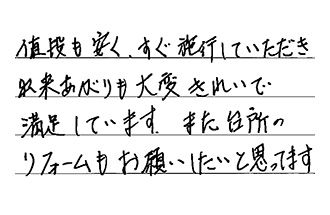 値段も安く、すぐ施行していただき
出来あがりも大変きれいで
満足しています。また台所の
リフォームもお願いしたいと思ってます